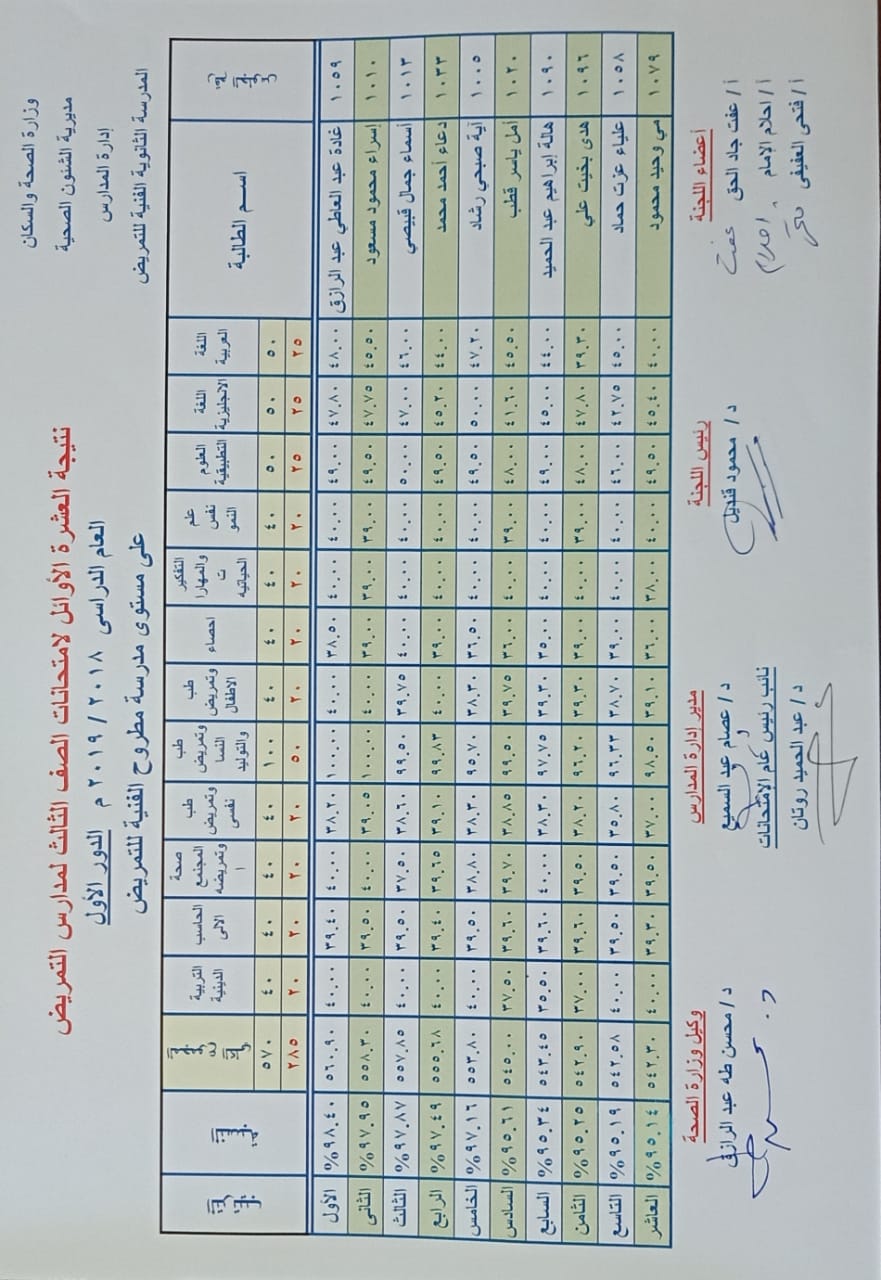 وزارة الصحة والسكان
مديرية الشئون الصحية
إدارة المدارس
المدرسة الثانوية الفنية للتمريض
نتيجة العشرة الأوائل لامتحانات الصف الثالث لمدارس التمريض
العام الدراسى ٢٠١٨ / ٢٠١٩ م الدور الأول
على مستوى مدرسة مطروح الفنية للتمريض
رقم الجلوس اسم الطالبة اللغة العربية اللغة الانجليزية العلوم التطبيقية علم نفس النمو التفكير والمهارات الحياتيه احصاء طب وتمريض الاطفال طب وتمريض النسا والتوليد طب وتمريض نفسى صحة المجتمع وتمريضها الحاسب الالى التربية الدينية المجموع الكلى النسبة الترتيب
٥٠ ٥٠ ٥٠ ٤٠ ٤٠ ٤٠ ٤٠ ١٠٠ ٤٠ ٤٠ ٤٠ ٤٠ ٥٧٠
٢٥ ٢٥ ٢٥ ٢٠ ٢٠ ٢٠ ٢٠ ٥٠ ٢٠ ٢٠ ٢٠ ٢٠ ٢٨٥
١٠٥٩ غادة عبد العاطي عبد الرازق ٤٨.٠٠ ٤٧.٨٠ ٤٩.٠٠ ٤٠.٠٠ ٤٠.٠٠ ٣٨.٥٠ ٤٠.٠٠ ١٠٠.٠٠ ٣٨.٢٠ ٤٠.٠٠ ٣٩.٤٠ ٤٠.٠٠ ٥٦٠.٩٠ %٩٨.٤٠ الأول
١٠١٠ إسراء محمود مسعود ٤٥.٥٠ ٤٧.٧٥ ٤٩.٥٠ ٣٩.٠٠ ٣٩.٠٠ ٣٩.٠٠ ٤٠.٠٠ ١٠٠.٠٠ ٣٩.٠٥ ٤٠.٠٠ ٣٩.٥٠ ٤٠.٠٠ ٥٥٨.٣٠ %٩٧.٩٥ الثانى
١٠١٣ أسماء جمال قبيصي ٤٦.٠٠ ٤٧.٠٠ ٥٠.٠٠ ٤٠.٠٠ ٤٠.٠٠ ٤٠.٠٠ ٣٩.٧٥ ٩٩.٥٠ ٣٨.٦٠ ٣٧.٥٠ ٣٩.٥٠ ٤٠.٠٠ ٥٥٧.٨٥ %٩٧.٨٧ الثالث
١٠٣٣ دعاء أحمد محمد ٤٤.٠٠ ٤٥.٢٠ ٤٩.٥٠ ٤٠.٠٠ ٤٠.٠٠ ٣٩.٠٠ ٤٠.٠٠ ٩٩.٨٣ ٣٩.١٠ ٣٩.٦٥ ٣٩.٤٠ ٤٠.٠٠ ٥٥٥.٦٨ %٩٧.٤٩ الرابع
١٠٠٥ آية صبحي رشاد ٤٧.٢٠ ٥٠.٠٠ ٤٩.٥٠ ٤٠.٠٠ ٤٠.٠٠ ٣٦.٥٠ ٣٨.٣٠ ٩٥.٧٠ ٣٨.٣٠ ٣٨.٨٠ ٣٩.٥٠ ٤٠.٠٠ ٥٥٣.٨٠ %٩٧.١٦ الخامس
١٠٢٠ أمل ياسر قطب ٤٥.٥٠ ٤١.٦٠ ٤٨.٠٠ ٣٩.٠٠ ٤٠.٠٠ ٣٦.٠٠ ٣٩.٧٥ ٩٩.٥٠ ٣٨.٨٥ ٣٩.٧٠ ٣٩.٦٠ ٣٧.٥٠ ٥٤٥.٠٠ %٩٥.٦١ السادس
١٠٩٠ هالة إبراهيم عبد الحميد ٤٤.٠٠ ٤٥.٠٠ ٤٩.٠٠ ٤٠.٠٠ ٤٠.٠٠ ٣٥.٠٠ ٣٩.٣٠ ٩٧.٧٥ ٣٨.٣٠ ٤٠.٠٠ ٣٩.٦٠ ٣٥.٥٠ ٥٤٣.٤٥ %٩٥.٣٤ السابع
١٠٩٦ هدى بخيت علي ٣٩.٣٠ ٤٧.٨٠ ٤٨.٠٠ ٣٩.٠٠ ٤٠.٠٠ ٣٩.٠٠ ٣٩.٣٠ ٩٦.٢٠ ٣٨.٢٠ ٣٩.٥٠ ٣٩.٦٠ ٣٧.٠٠ ٥٤٢.٩٠ %٩٥.٢٥ الثامن
١٠٥٨ علياء عزت حماد ٤٥.٠٠ ٤٢.٧٥ ٤٦.٠٠ ٤٠.٠٠ ٤٠.٠٠ ٣٩.٠٠ ٣٨.٧٠ ٩٦.٣٣ ٣٥.٨٠ ٣٩.٥٠ ٣٩.٥٠ ٤٠.٠٠ ٥٤٢.٥٨ %٩٥.١٩ التاسع
١٠٧٩ مي وحيد محمود ٤٠.٠٠ ٤٥.٤٠ ٤٩.٥٠ ٤٠.٠٠ ٣٨.٠٠ ٣٦.٠٠ ٣٩.١٠ ٩٨.٥٠ ٣٧.٠٠ ٣٩.٥٠ ٣٩.٣٠ ٤٠.٠٠ ٥٤٢.٣٠ %٩٥.١٤ العاشر
أعضاء اللجنة
أ / عفت جاد الحق عفت
أ / احلام الإمام احلام
أ / فتحى العفيفي
رئيس اللجنة
د / محمود قنديل
مدير إدارة المدارس
د / عصام عبد السميع
نائب رئيس عام الإمتحانات
د / عبد الحميد روتان
وكيل وزارة الصحة
د / محسن طه عبد الرازق